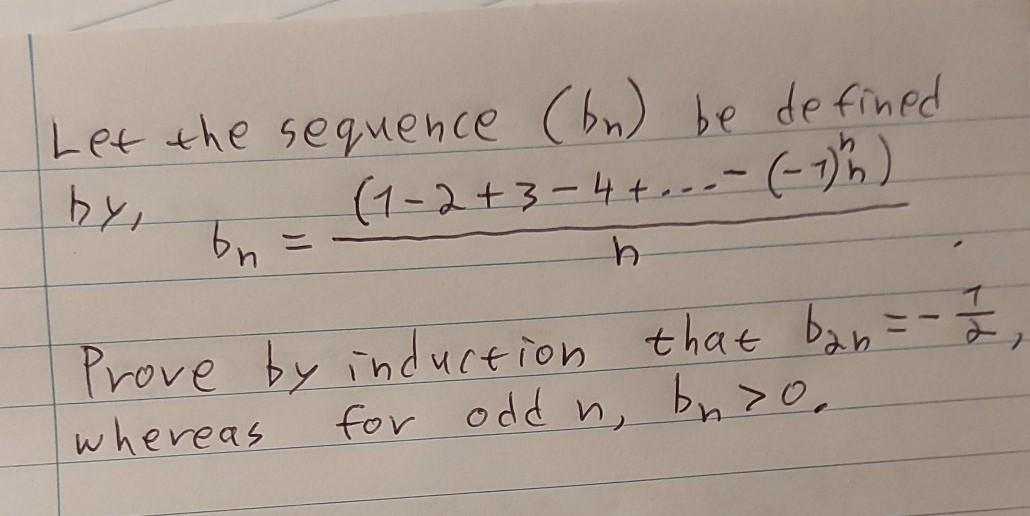 Let the sequence (bn) be defined
by, bn = (1-2+3-4+...-(-1)^n n) / n
Prove by induction that b2n = -1/2,
whereas for odd n, bn > 0.